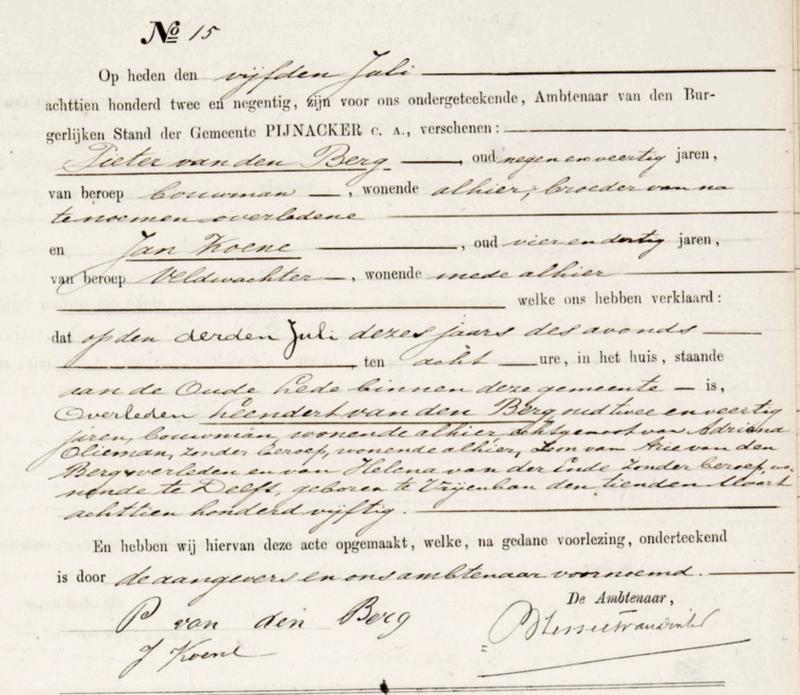 No 15
Op heden den vijfden Juli
achttien honderd twee en negentig, zijn voor ons ondergeteekende, Ambtenaar van den Bur-
gerlijken Stand der Gemeente PIJNACKER c. a., verschenen:
Pieter van den Berg, oud negen en veertig jaren,
van beroep bouwman, wonende alhier, broeder van na
te noemen overledene
en Jan Koene, oud vier en dertig jaren,
van beroep Veldwachter, wonende mede alhier
welke ons hebben verklaard:
dat op den derden Juli dezes jaars des avonds
ten acht ure, in het huis, staande
aan de Oude Lede binnen deze gemeente is,
Overleden Leendert van den Berg, oud twee en veertig
jaren, bouwman, wonende alhier Echtgenoot van Adriana
Olieman, zonder beroep, wonende alhier, Zoon van Arie van den
Berg overleden en van Helena van der Ende zonder beroep, wo-
nende te Delft, geboren te Vrijenban den tienden Maart
achttien honderd vijftig.
En hebben wij hiervan deze acte opgemaakt, welke, na gedane voorlezing, onderteekend
is door de aangevers en ons ambtenaar voornoemd.
De Ambtenaar,
P van den Berg
J Koene